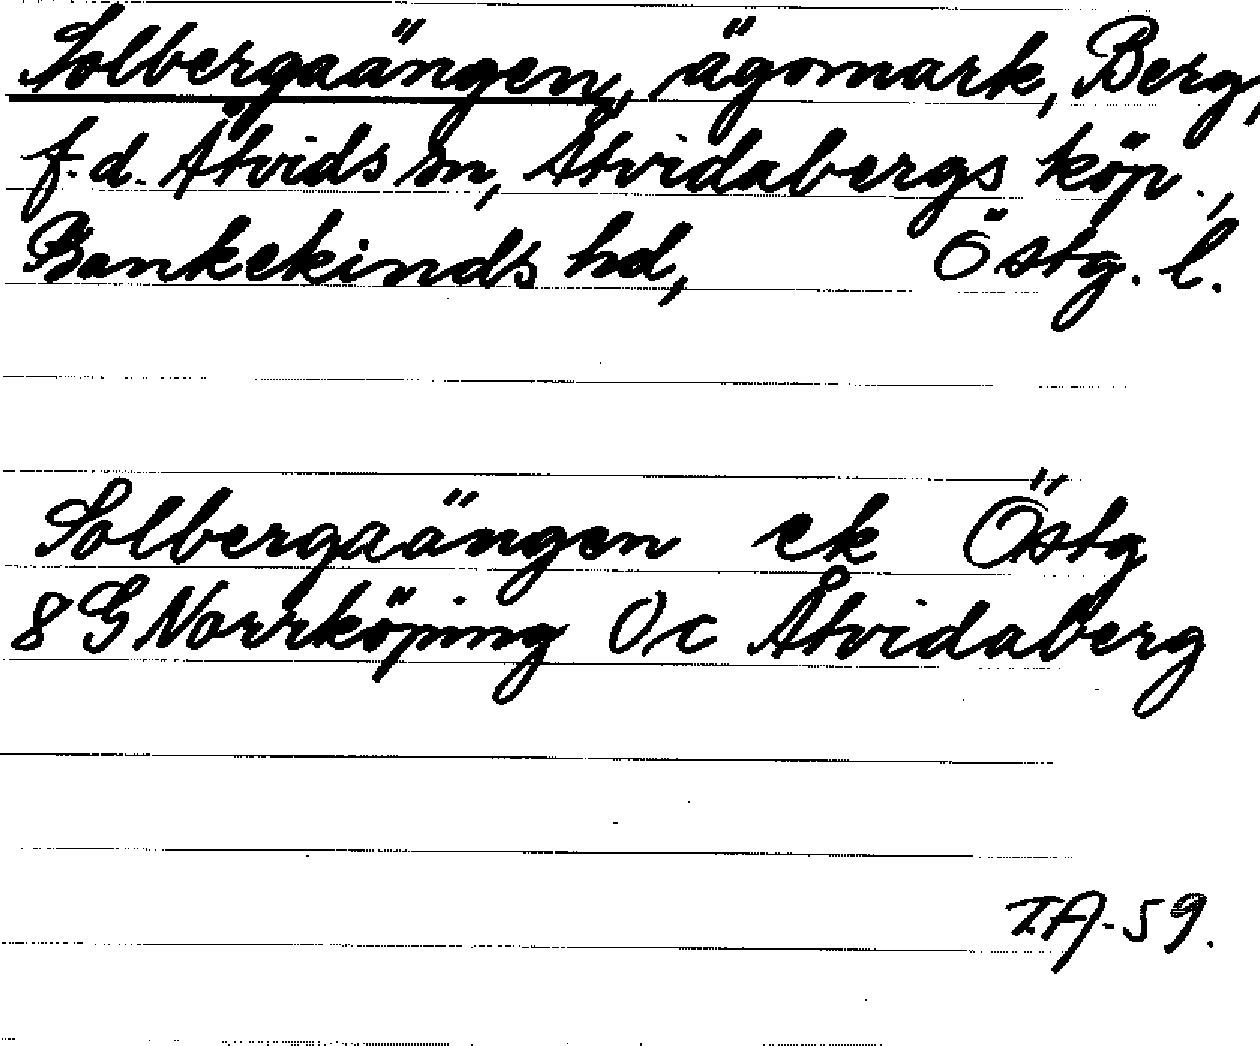 Solbergaängen, ägomark, Berg,
f.d. Åtvids sn, Åtvidabergs köp.,
Bankekinds hd, Östg. l.
Solbergaängen ek Östg
8 G Norrköping 0c Åtvidaberg
T.A-59.